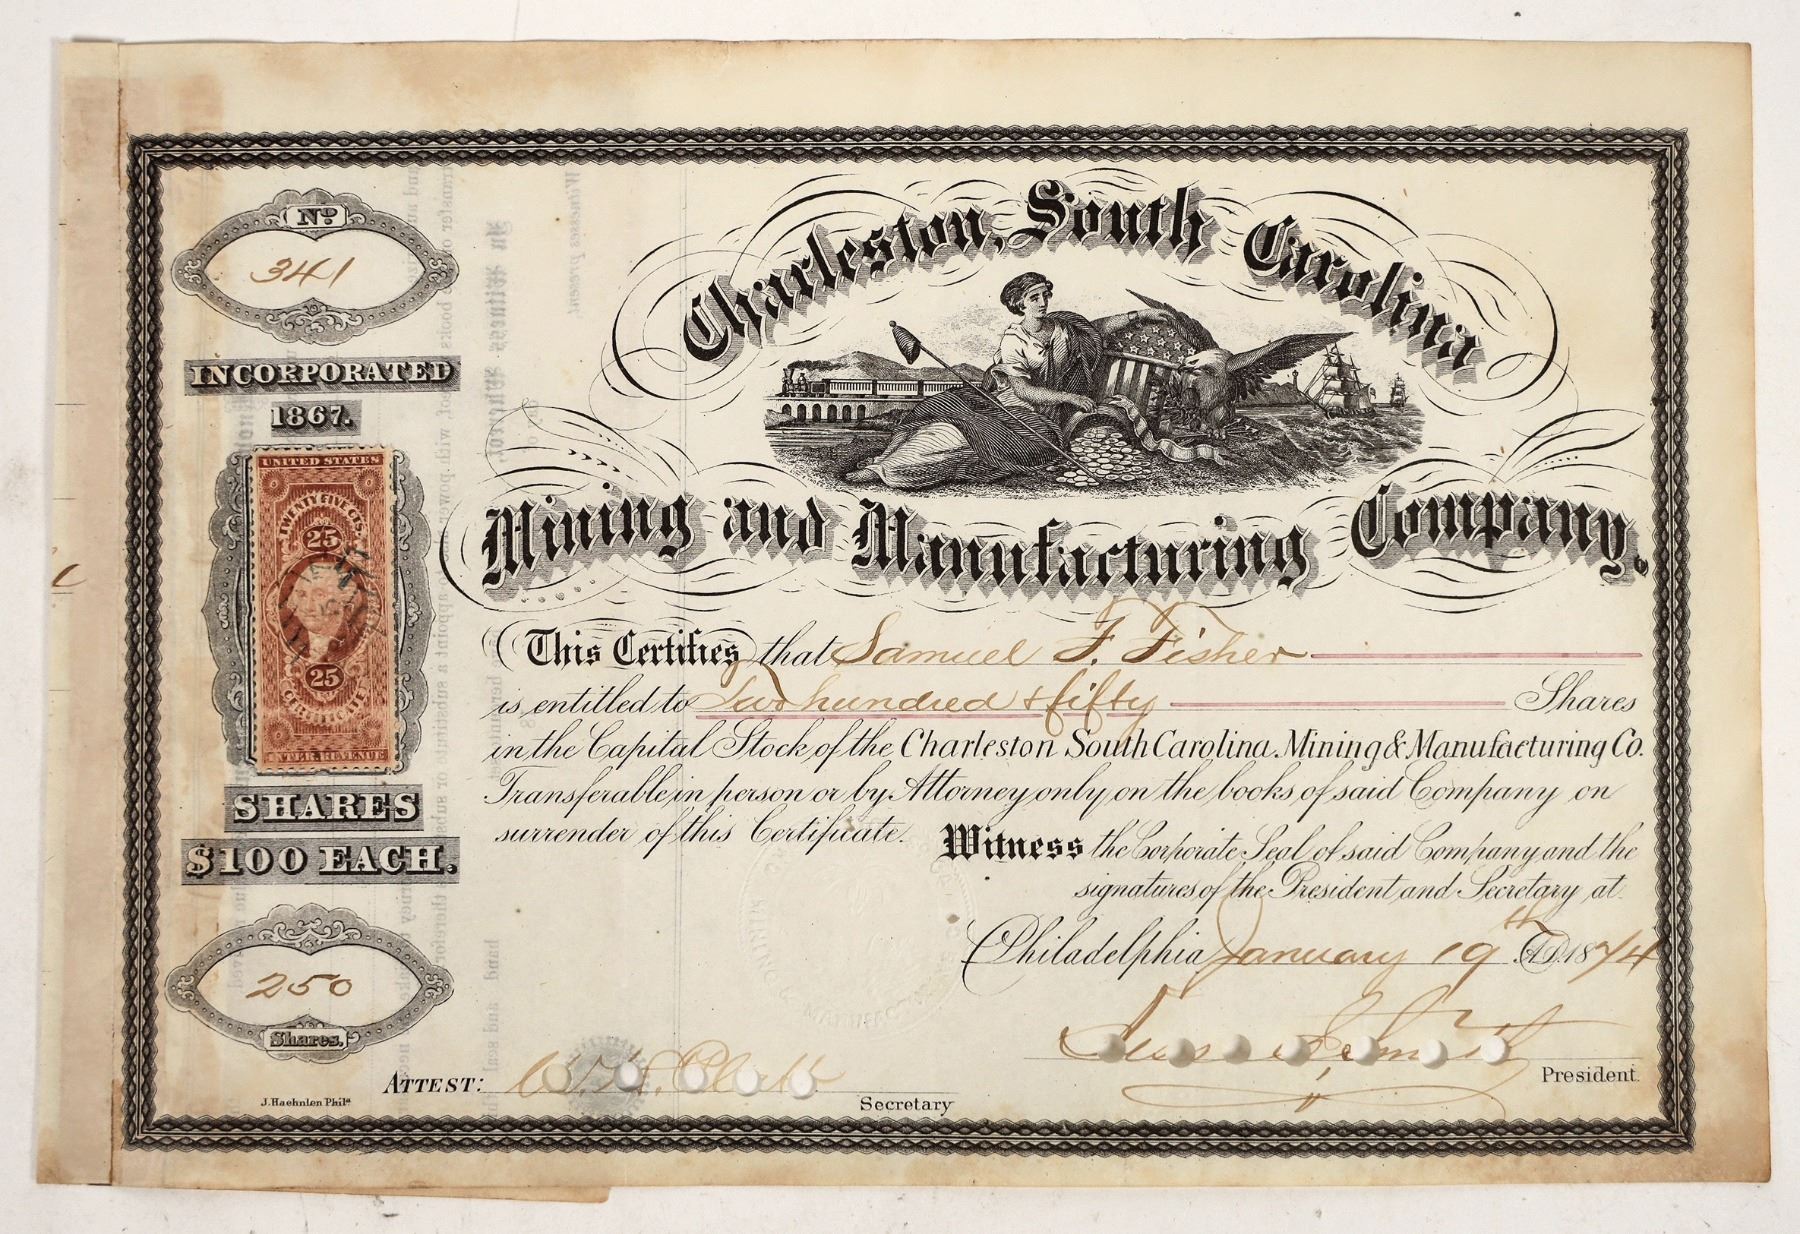 Nº
341
INCORPORATED
1867.
UNITED STATES
TWENTY FIVE CTS.
25
25
CERTIFICATE
INTER. REVENUE
SHARES
$100 EACH.
250
Shares.
J. Haehnlen Phila
Charleston, South Carolina
Mining and Manufacturing Company.
This Certifies that Samuel F. Fisher
is entitled to Two hundred & fifty Shares
in the Capital Stock of the Charleston South Carolina Mining & Manufacturing Co.
Transferable in person or by Attorney only on the books of said Company on
surrender of this Certificate. Witness the Corporate Seal of said Company and the
signatures of the President and Secretary at
Philadelphia January 19th A.D. 1874
President.
ATTEST:
Secretary